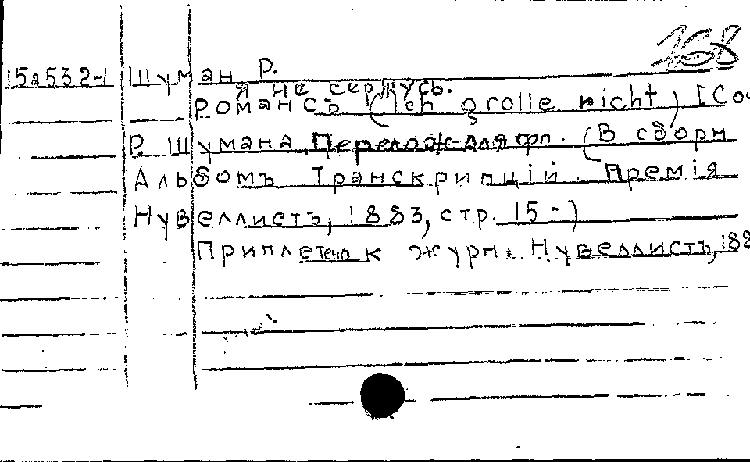 168
15а532-1 Шуман Р.
Я не сержусь.
Романсъ (Ich grolle nicht) [Со
Р. Шумана. Перелож. для фп. (В сборн
Альбомъ Транскрипцiй. Премiя
Нувеллистъ, 1883, стр. 15-)
Приплетен к журн. Нувеллистъ, 188